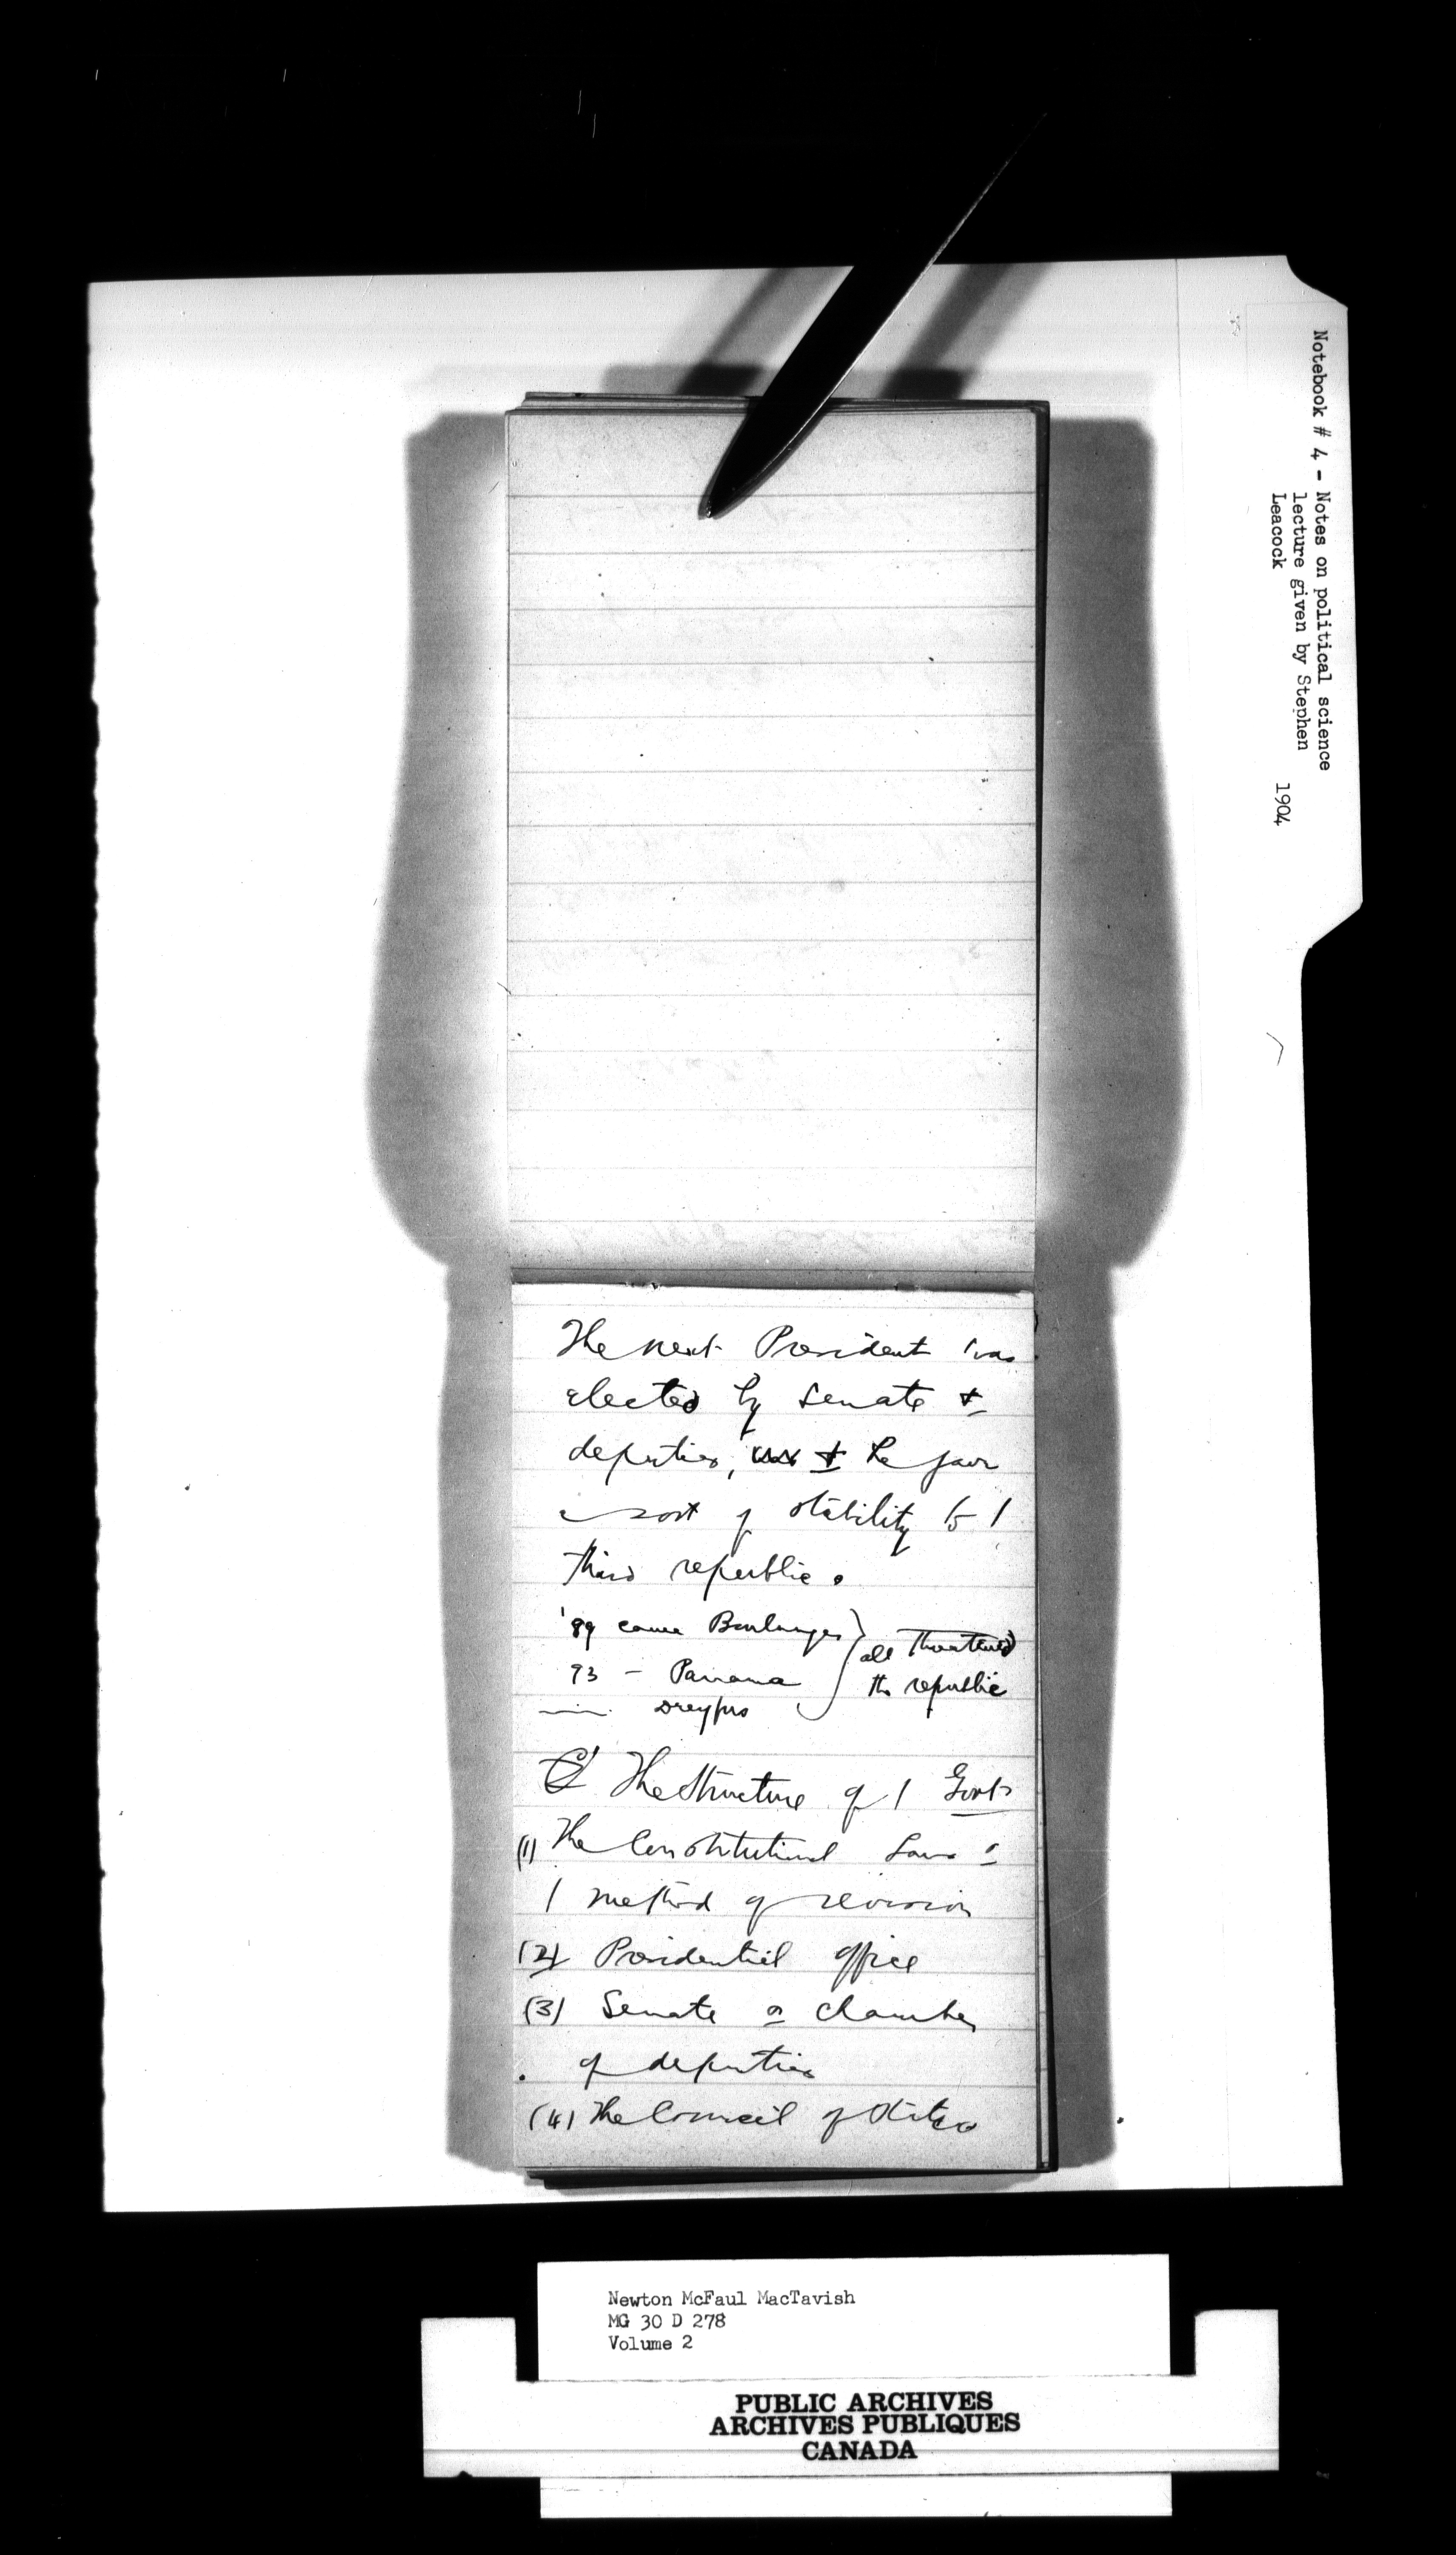 Notebook # 4 - Notes on political science
lecture given by Stephen
Leacock 1904
The next President was
elected by Senate &
deputies, & he gave
a sort of stability to /
third republic.
'89 came Boulanger } all threatened
93 - Panama the republic
Dreyfus
The Structure of / Govt
(1) The Constitutional Laws &
/ method of revision
(2) Presidential office
(3) Senate & chamber
of deputies
(4) The Council of State
Newton McFaul MacTavish
MG 30 D 278
Volume 2
PUBLIC ARCHIVES
ARCHIVES PUBLIQUES
CANADA